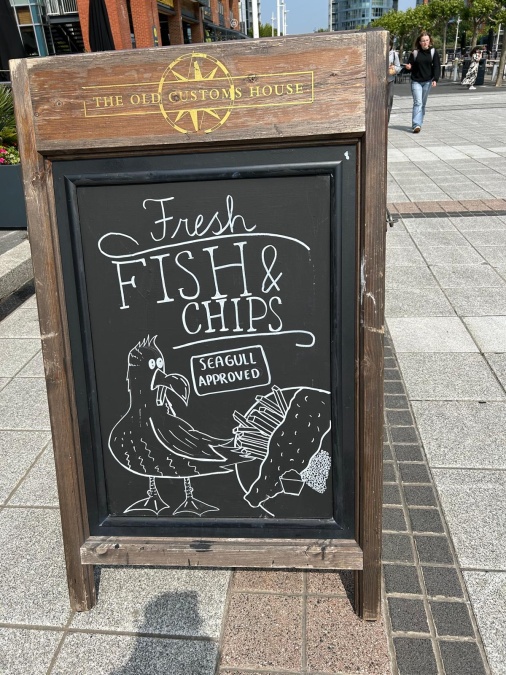 THE OLD CUSTOMS HOUSE
Fresh
FISH &
CHIPS
SEAGULL
APPROVED